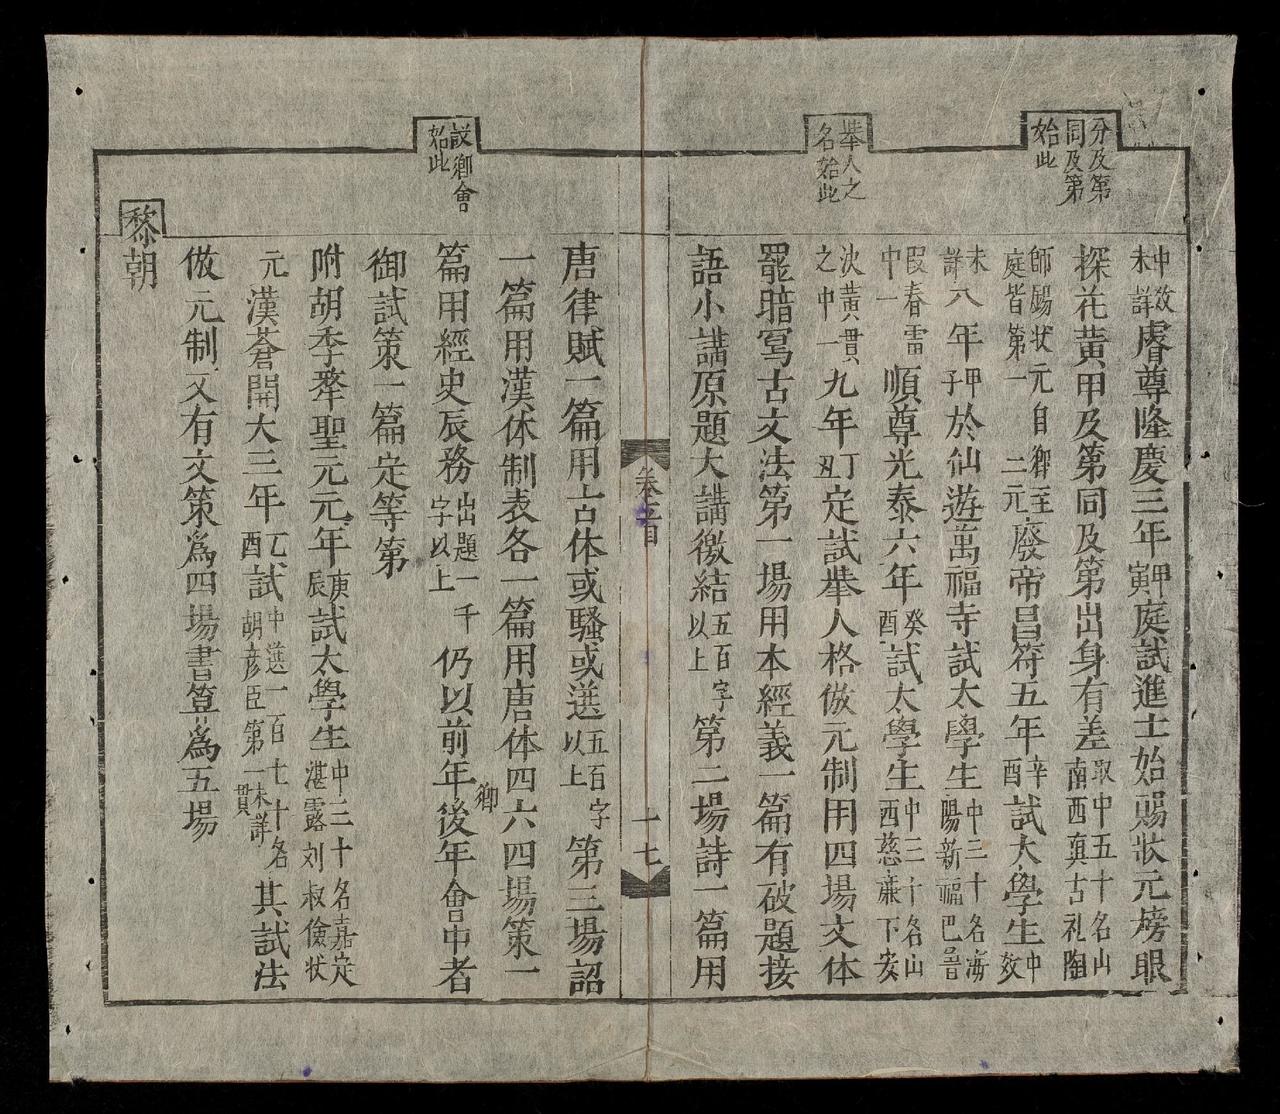 分及第
同及第
始此
中效
未詳
睿尊隆慶三年甲寅庭試進士始賜狀元榜眼
探花黃甲及第同及第出身有差取中五十名山
南西真古礼陶
師錫狀元自鄉至
庭皆第一二元廢帝昌符五年辛酉試太學生中
效
未詳八年甲子於仙遊萬福寺試太學生中三十名海
陽新福巴
段春雷
中一順尊光泰六年癸酉試太學生中三十名山
西慈廉下安
決黃貫
之中一九年丁丑定試舉人格倣元制用四場文体
舉人之
名始此
罷暗寫古文法第一場用本經義一篇有破題接
語小講原題大講徼結五百字
以上第二場詩一篇用
卷三目
十七
唐律賦一篇用古体或騷或選五百字
以上第三場詔
一篇用漢体制表各一篇用唐体四六四場策一
篇用經史辰務出題一千
字以上仍以前年鄉後年會中者
設鄉會
始此
御試策一篇定等第
附胡季犛聖元元年庚辰試太學生中二十名嘉定
湛露刘叔儉状
元漢蒼開大三年乙酉試中選一百七十名
胡彦臣第一未詳貫其試法
倣元制又有文策為四場書算為五場
黎朝